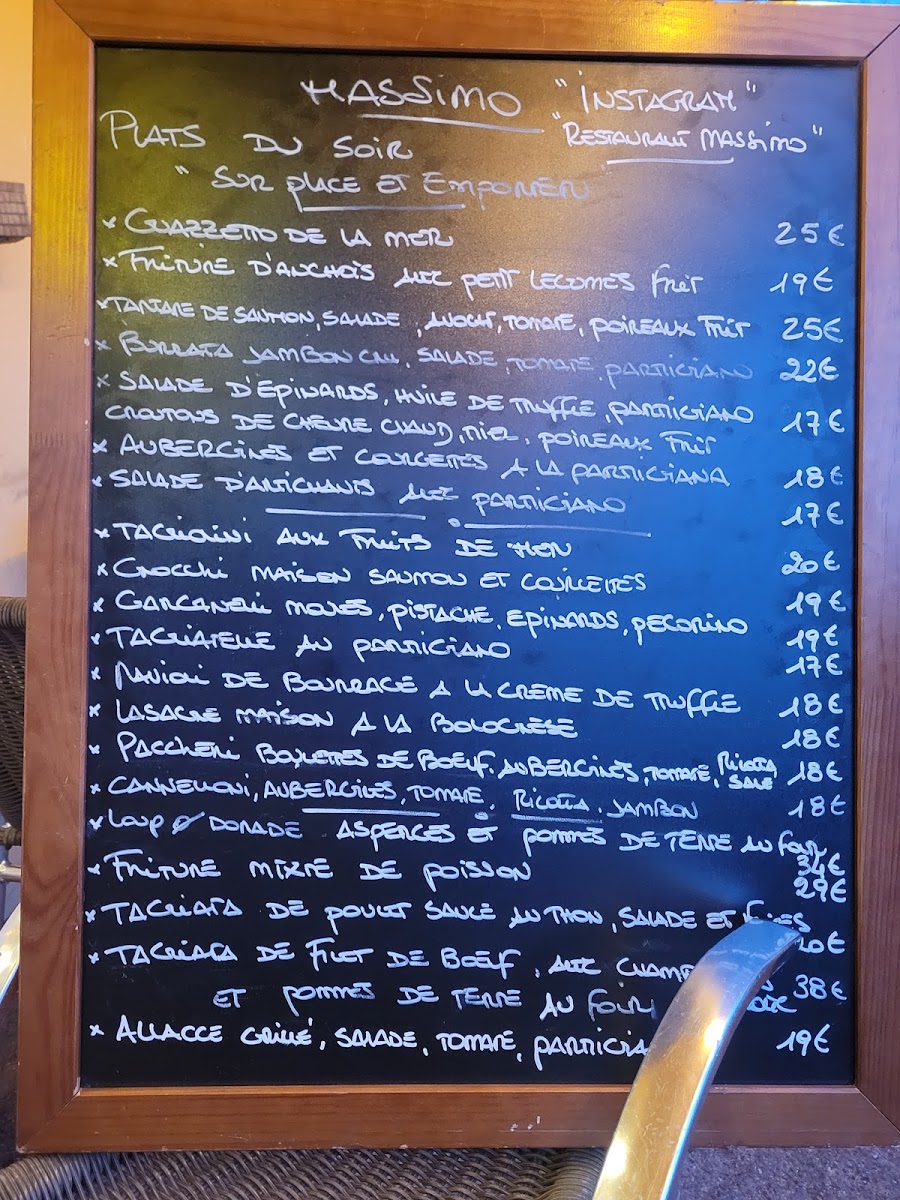 MASSIMO "INSTAGRAM"
PLATS DU SOIR "RESTAURANT MASSIMO"
" SUR PLACE ET EMPORTER
* GUAZZETTO DE LA MER 25€
* FRITURE D'ANCHOIS AVEC PETIT LEGUMES FRIT 19€
* TARTARE DE SAUMON, SALADE, AVOCAT, TOMATE, POIREAUX FRIT 25€
* BURRATA JAMBON CRU, SALADE, TOMATE, PARMIGIANO 22€
* SALADE D'EPINARDS, HUILE DE TRUFFLE, PARMIGIANO
CROUTONS DE CHEVRE CHAUD, MIEL, POIREAUX FRIT 17€
* AUBERGINES ET COURGETTES A LA PARMIGIANA 18€
* SALADE D'ARTICHAUTS AVEC PARMIGIANO 17€
* TAGLIOLINI AUX FRUITS DE MER 20€
* GNOCCHI MAISON SAUMON ET COURGETTES 19€
* GARGANELLI MOULES, PISTACHE, EPINARDS, PECORINO 19€
* TAGLIATELLE AU PARMIGIANO 17€
* RAVIOLI DE BOURRACE A LA CREME DE TRUFFLE 18€
* LASAGNE MAISON A LA BOLOGNESE 18€
* PACCHERI BOULETTES DE BOEUF, AUBERGINES, TOMATE, RICOTTA SALE 18€
* CANNELLONI, AUBERGINES, TOMATE, RICOTTA, JAMBON 18€
* LOUP Ø DORADE ASPERGES ET POMMES DE TERRE AU FOUR 34€
* FRITURE MIXTE DE POISSON 29€
* TAGLIATA DE POULET SAUCE AU THON, SALADE ET
* TAGLIATA DE FILET DE BOEUF, AVEC
ET POMMES DE TERRE AU FOUR 38€
* ALLACCE GRILLÉ, SALADE, TOMATE, 19€